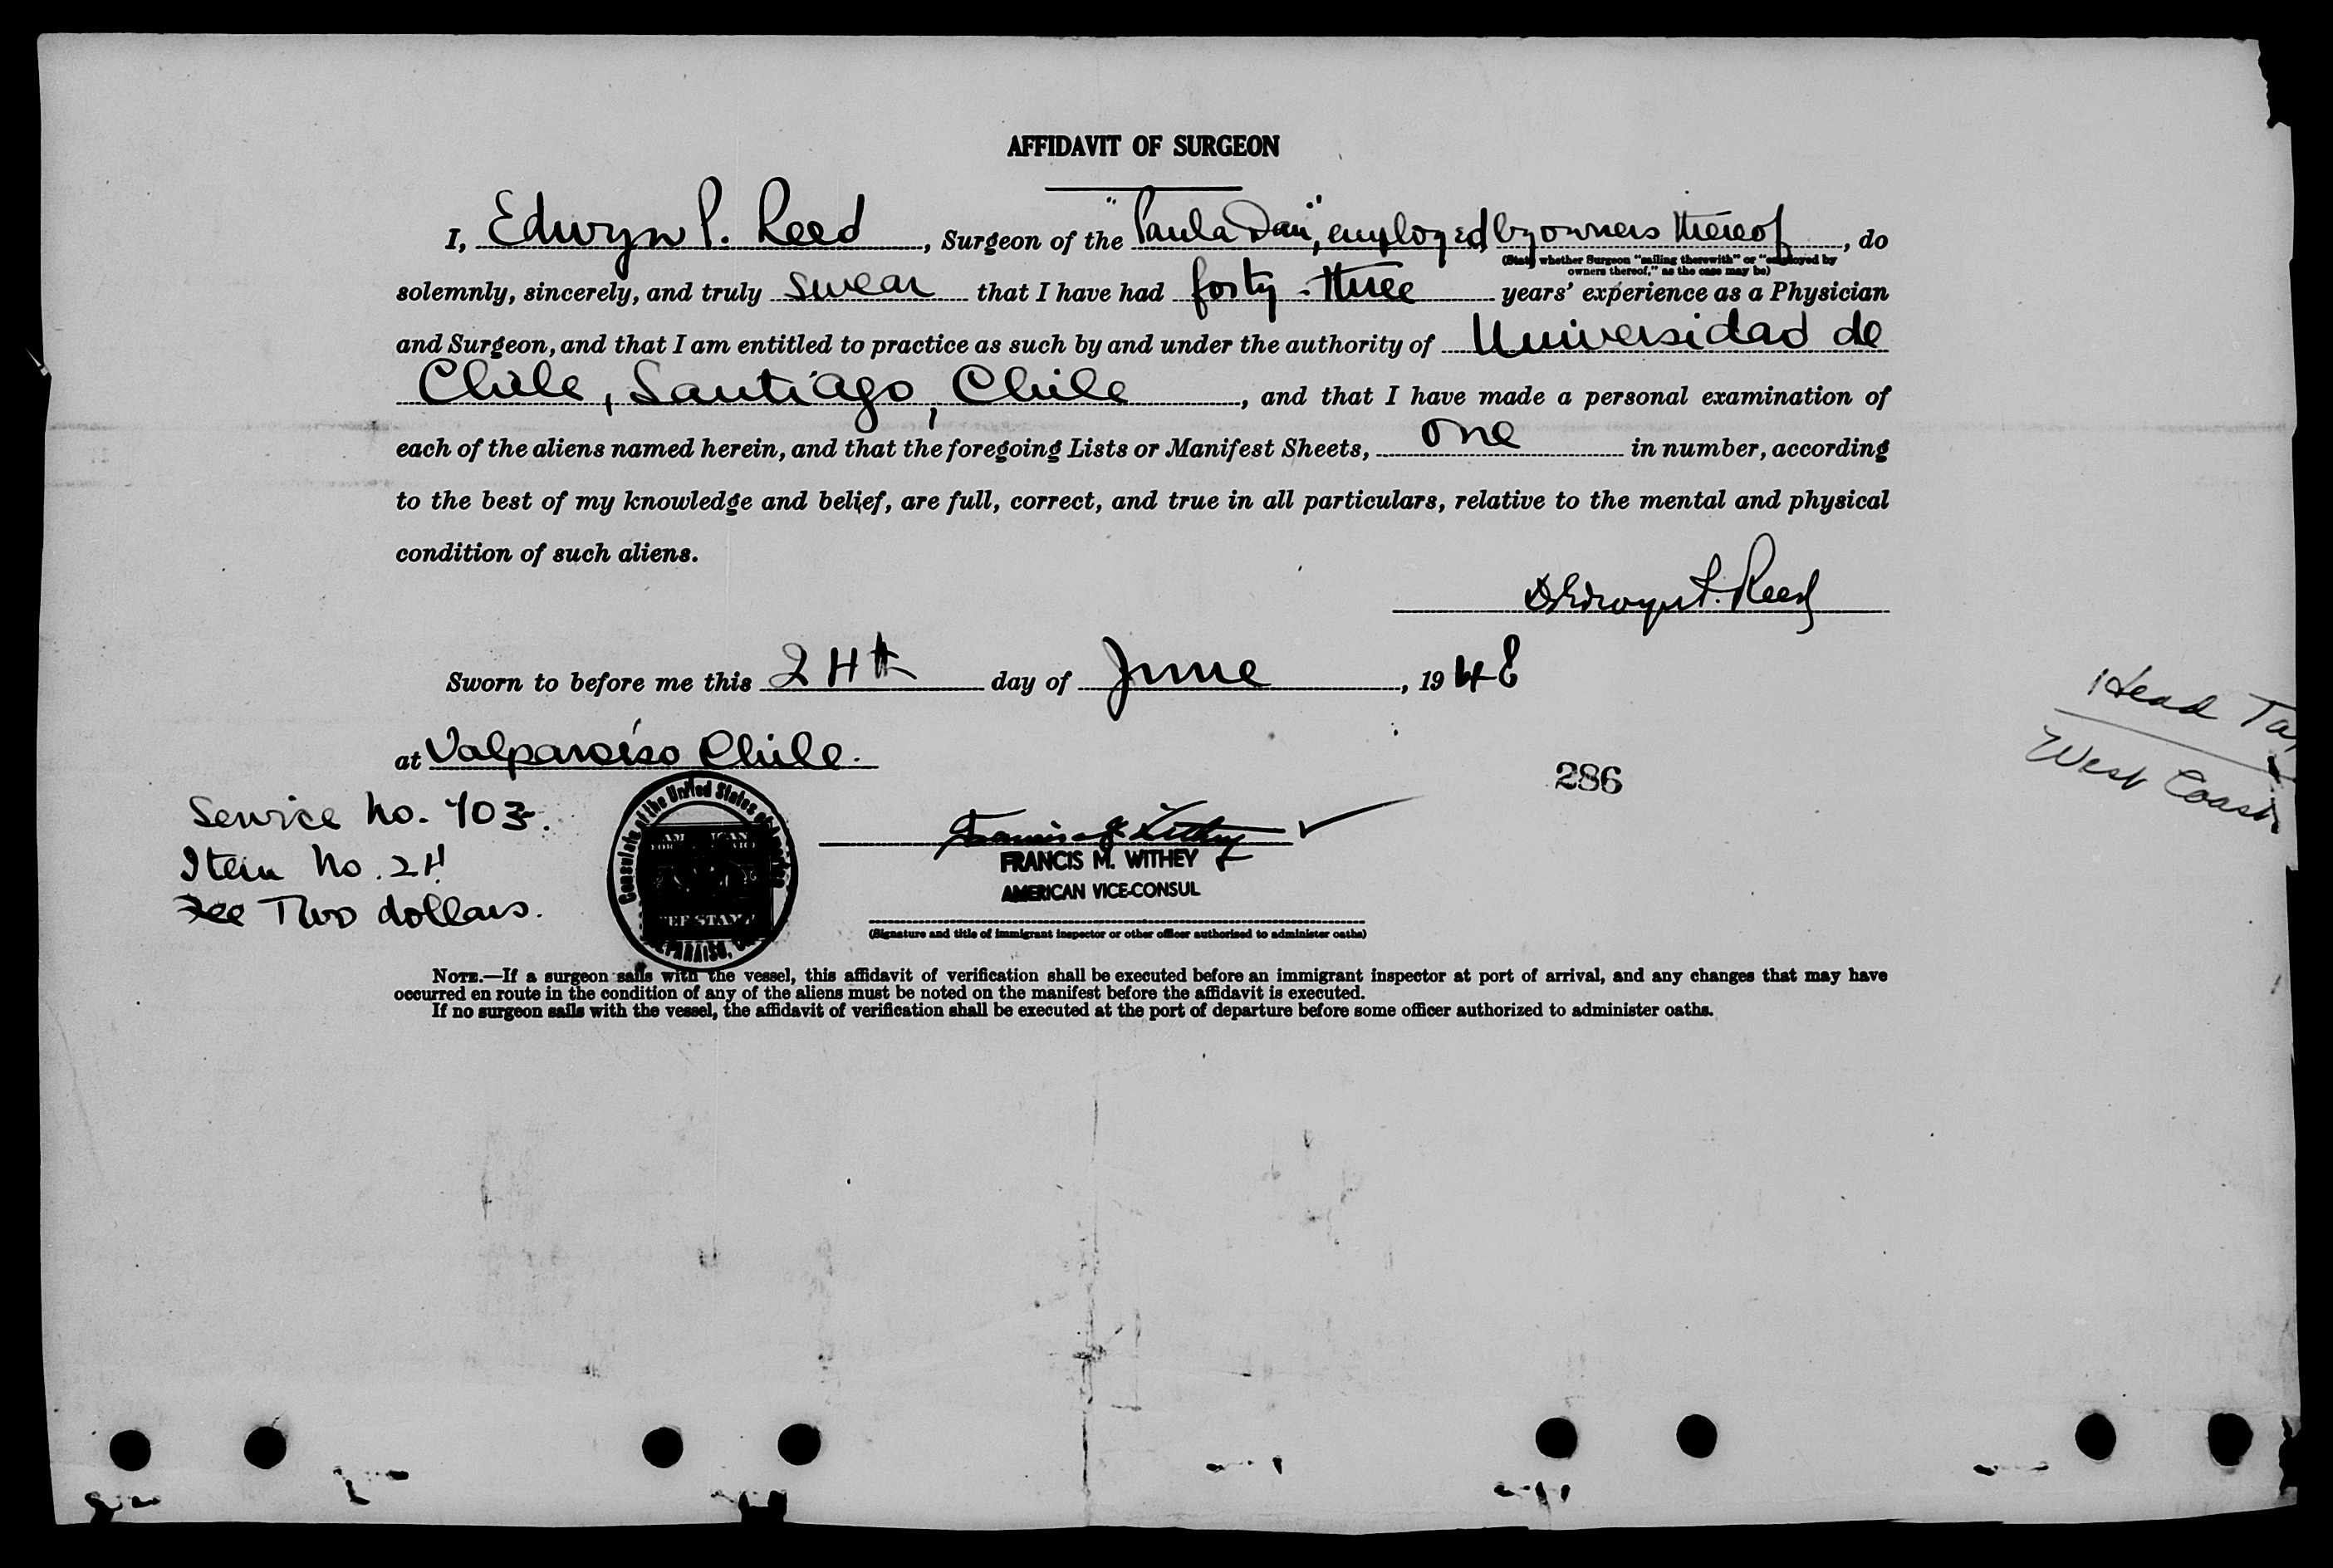 AFFIDAVIT OF SURGEON
I, Edwyn P. Reed, Surgeon of the "Paula Dan", employed by owners thereof, do
(State whether Surgeon "sailing therewith" or "employed by
owners thereof," as the case may be)
solemnly, sincerely, and truly swear that I have had forty-three years' experience as a Physician
and Surgeon, and that I am entitled to practice as such by and under the authority of Universidad de
Chile, Santiago, Chile, and that I have made a personal examination of
each of the aliens named herein, and that the foregoing Lists or Manifest Sheets, one in number, according
to the best of my knowledge and belief, are full, correct, and true in all particulars, relative to the mental and physical
condition of such aliens.
Dr Edwyn P. Reed
Sworn to before me this 24th day of June, 1948
at Valparaíso Chile.
286
Head Ta
West Coast
Service No. 703.
Item No. 24
Fee Two dollars.
Consulate of the United States of America
FEE STAMP
FRANCIS M. WITHEY
AMERICAN VICE-CONSUL
(Signature and title of immigrant inspector or other officer authorized to administer oaths)
NOTE.—If a surgeon sails with the vessel, this affidavit of verification shall be executed before an immigrant inspector at port of arrival, and any changes that may have
occurred en route in the condition of any of the aliens must be noted on the manifest before the affidavit is executed.
If no surgeon sails with the vessel, the affidavit of verification shall be executed at the port of departure before some officer authorized to administer oaths.